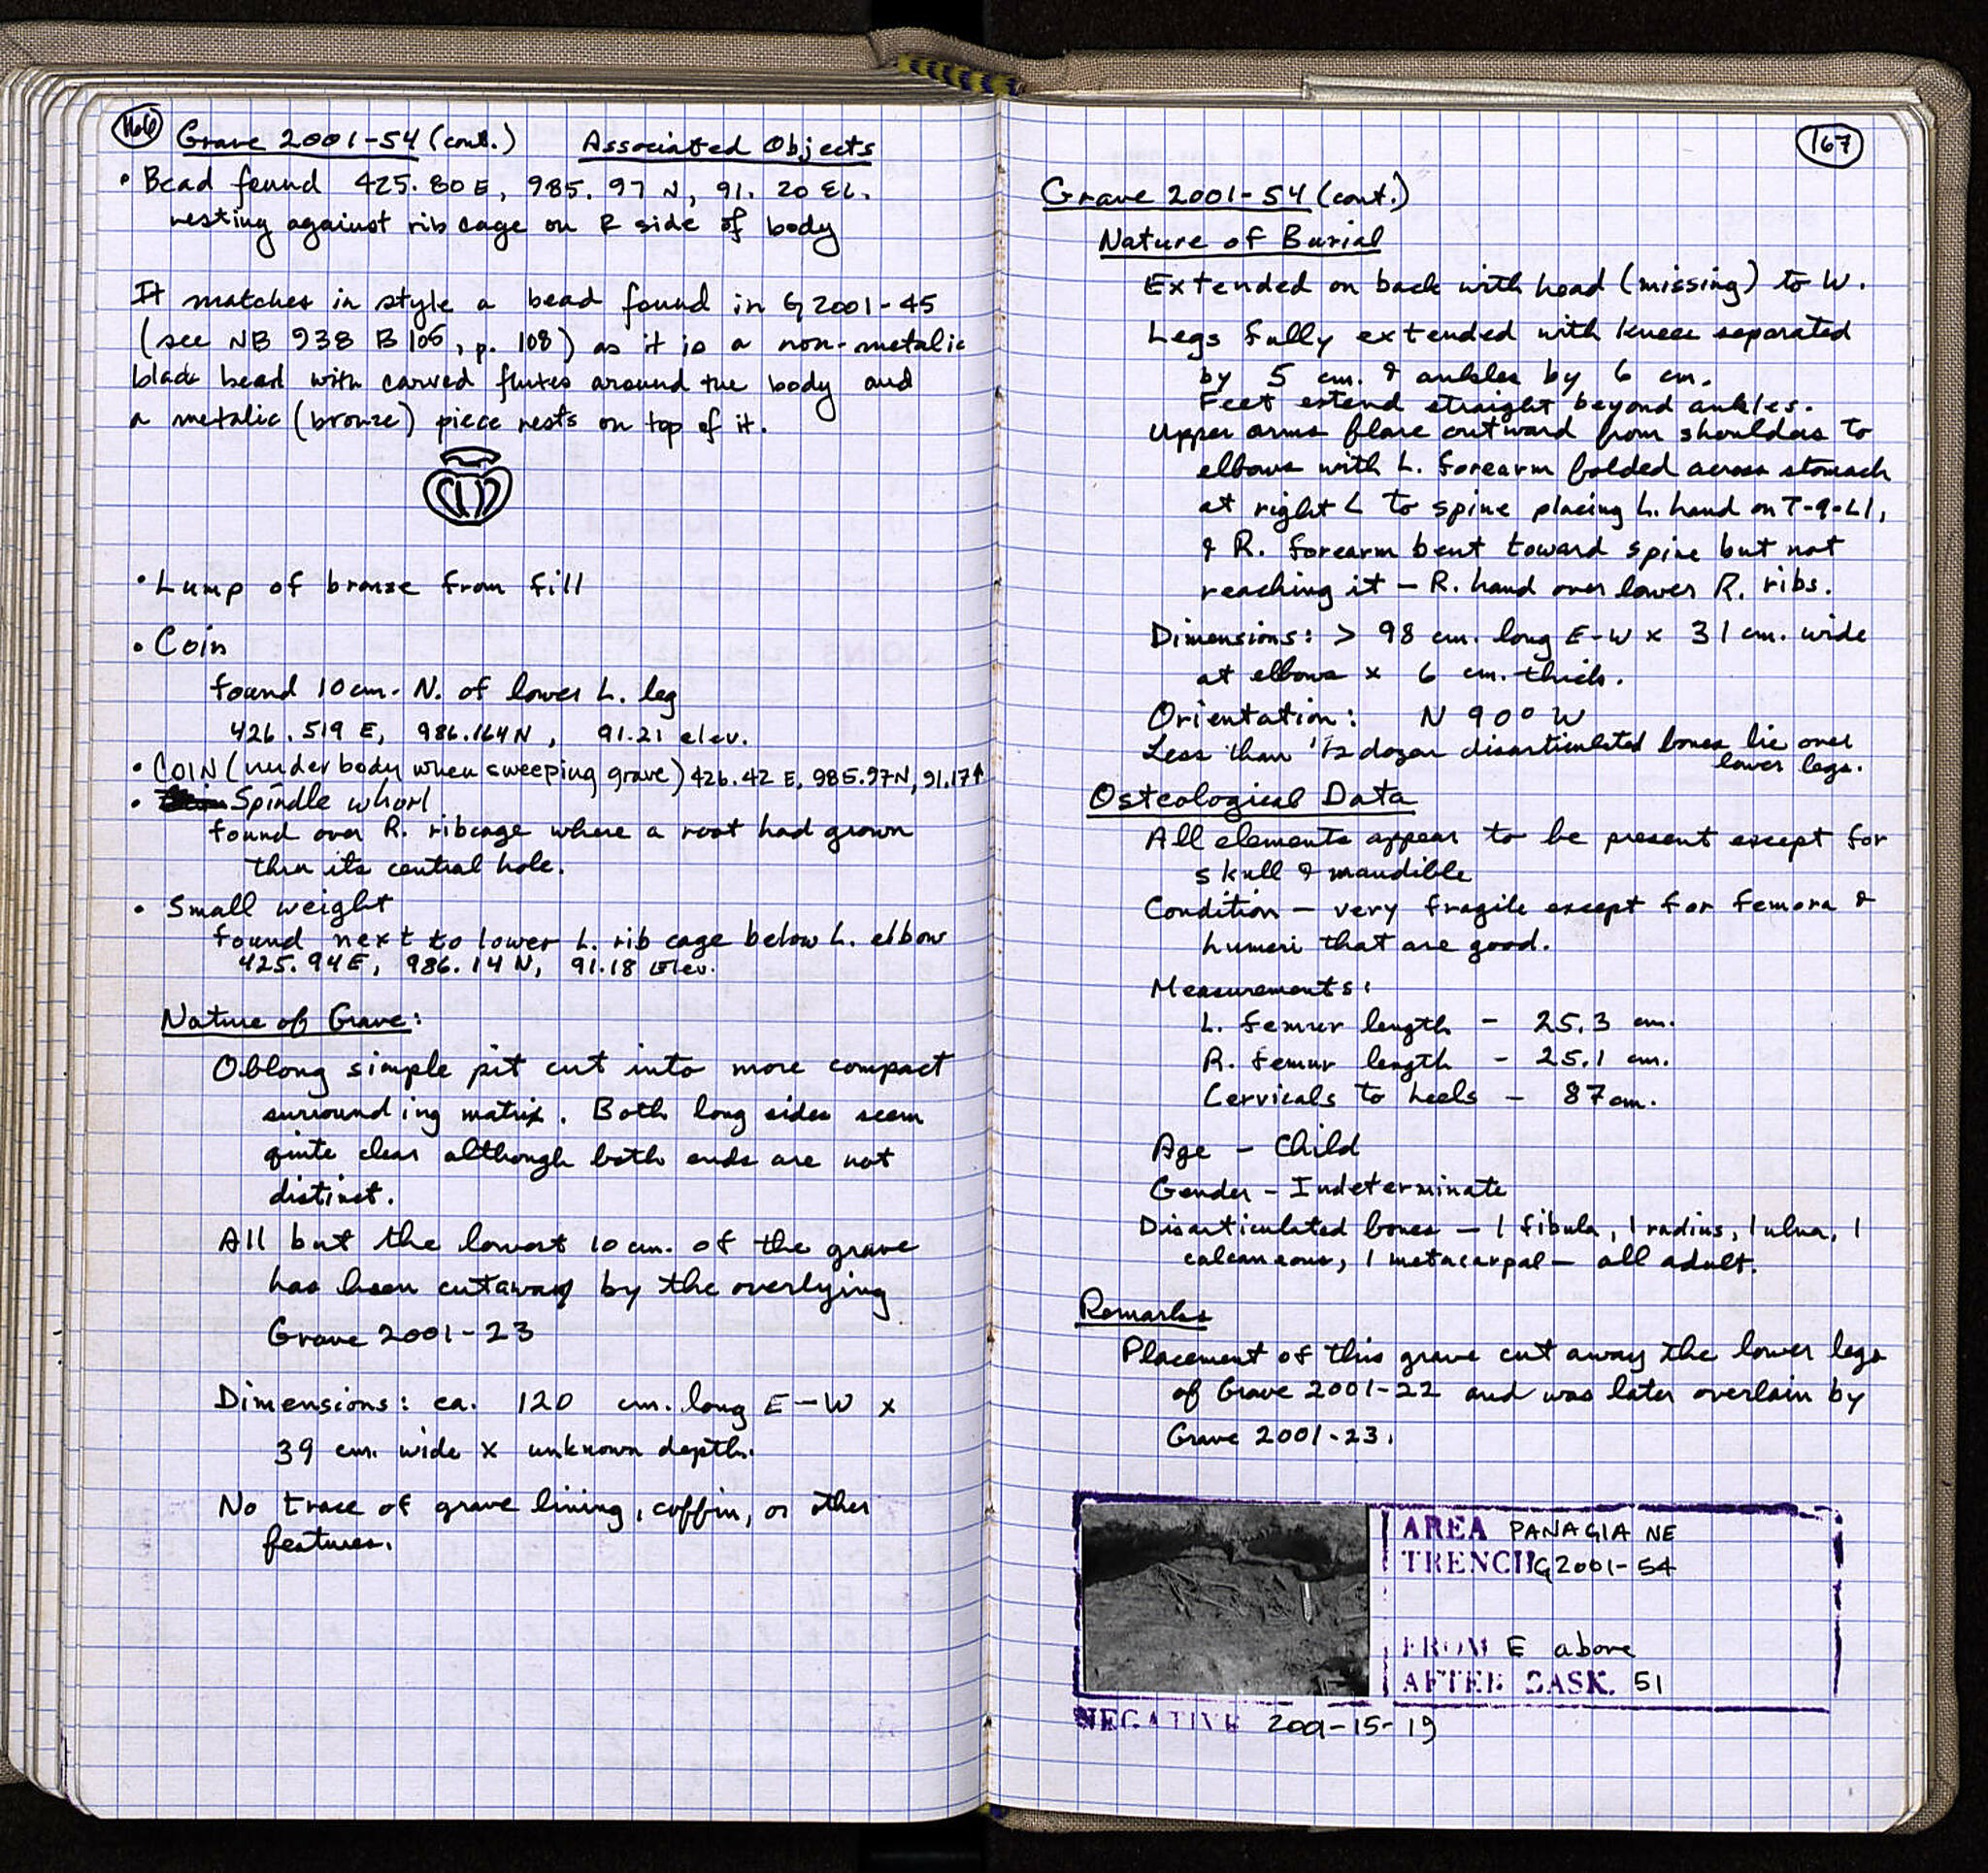 166
Grave 2001-54 (cont.) Associated Objects
• Bead found 425.80 E, 985.97 N, 91.20 EL.
resting against rib cage on R side of body
It matches in style a bead found in G 2001-45
(see NB 938 B 105, p. 108) as it is a non-metalic
black bead with carved flutes around the body and
a metalic (bronze) piece rests on top of it.
• Lump of bronze from fill
• Coin
found 10 cm. N. of lower L. leg
426.519 E, 986.164 N, 91.21 elev.
• COIN (under body when sweeping grave) 426.42 E, 985.97 N, 91.17↑
• Spindle whorl
found over R. ribcage where a root had grown
thru its central hole.
• Small weight
found next to lower L. rib cage below L. elbow
425.94 E, 986.14 N, 91.18 Elev.
Nature of Grave:
Oblong simple pit cut into more compact
surrounding matrix. Both long sides seem
quite clear although both ends are not
distinct.
All but the lowest 10 cm. of the grave
has been cutaway by the overlying
Grave 2001-23
Dimensions: ca. 120 cm. long E-W x
39 cm. wide x unknown depth.
No trace of grave lining, coffin, or other
features.
167
Grave 2001-54 (cont.)
Nature of Burial
Extended on back with head (missing) to W.
Legs fully extended with knees separated
by 5 cm. & ankles by 6 cm.
Feet extend straight beyond ankles.
Upper arms flare outward from shoulders to
elbows with L. forearm folded across stomach
at right ∠ to spine placing L. hand on T-9-L1,
& R. forearm bent toward spine but not
reaching it - R. hand over lower R. ribs.
Dimensions: > 98 cm. long E-W x 31 cm. wide
at elbows x 6 cm. thick.
Orientation: N 90° W
Less than 1/2 dozen disarticulated bones lie over
lower legs.
Osteological Data
All elements appear to be present except for
skull & mandible
Condition - very fragile except for femora &
humeri that are good.
Measurements:
L. femur length - 25.3 cm.
R. femur length - 25.1 cm.
Cervicals to heels - 87 cm.
Age - Child
Gender - Indeterminate
Disarticulated bones - 1 fibula, 1 radius, 1 ulna, 1
calcaneous, 1 metacarpal - all adult.
Remarks
Placement of this grave cut away the lower legs
of Grave 2001-22 and was later overlain by
Grave 2001-23.
AREA PANAGIA NE
TRENCH G2001-54
FROM E above
AFTER BASK. 51
NEGATIVE 2001-15-19